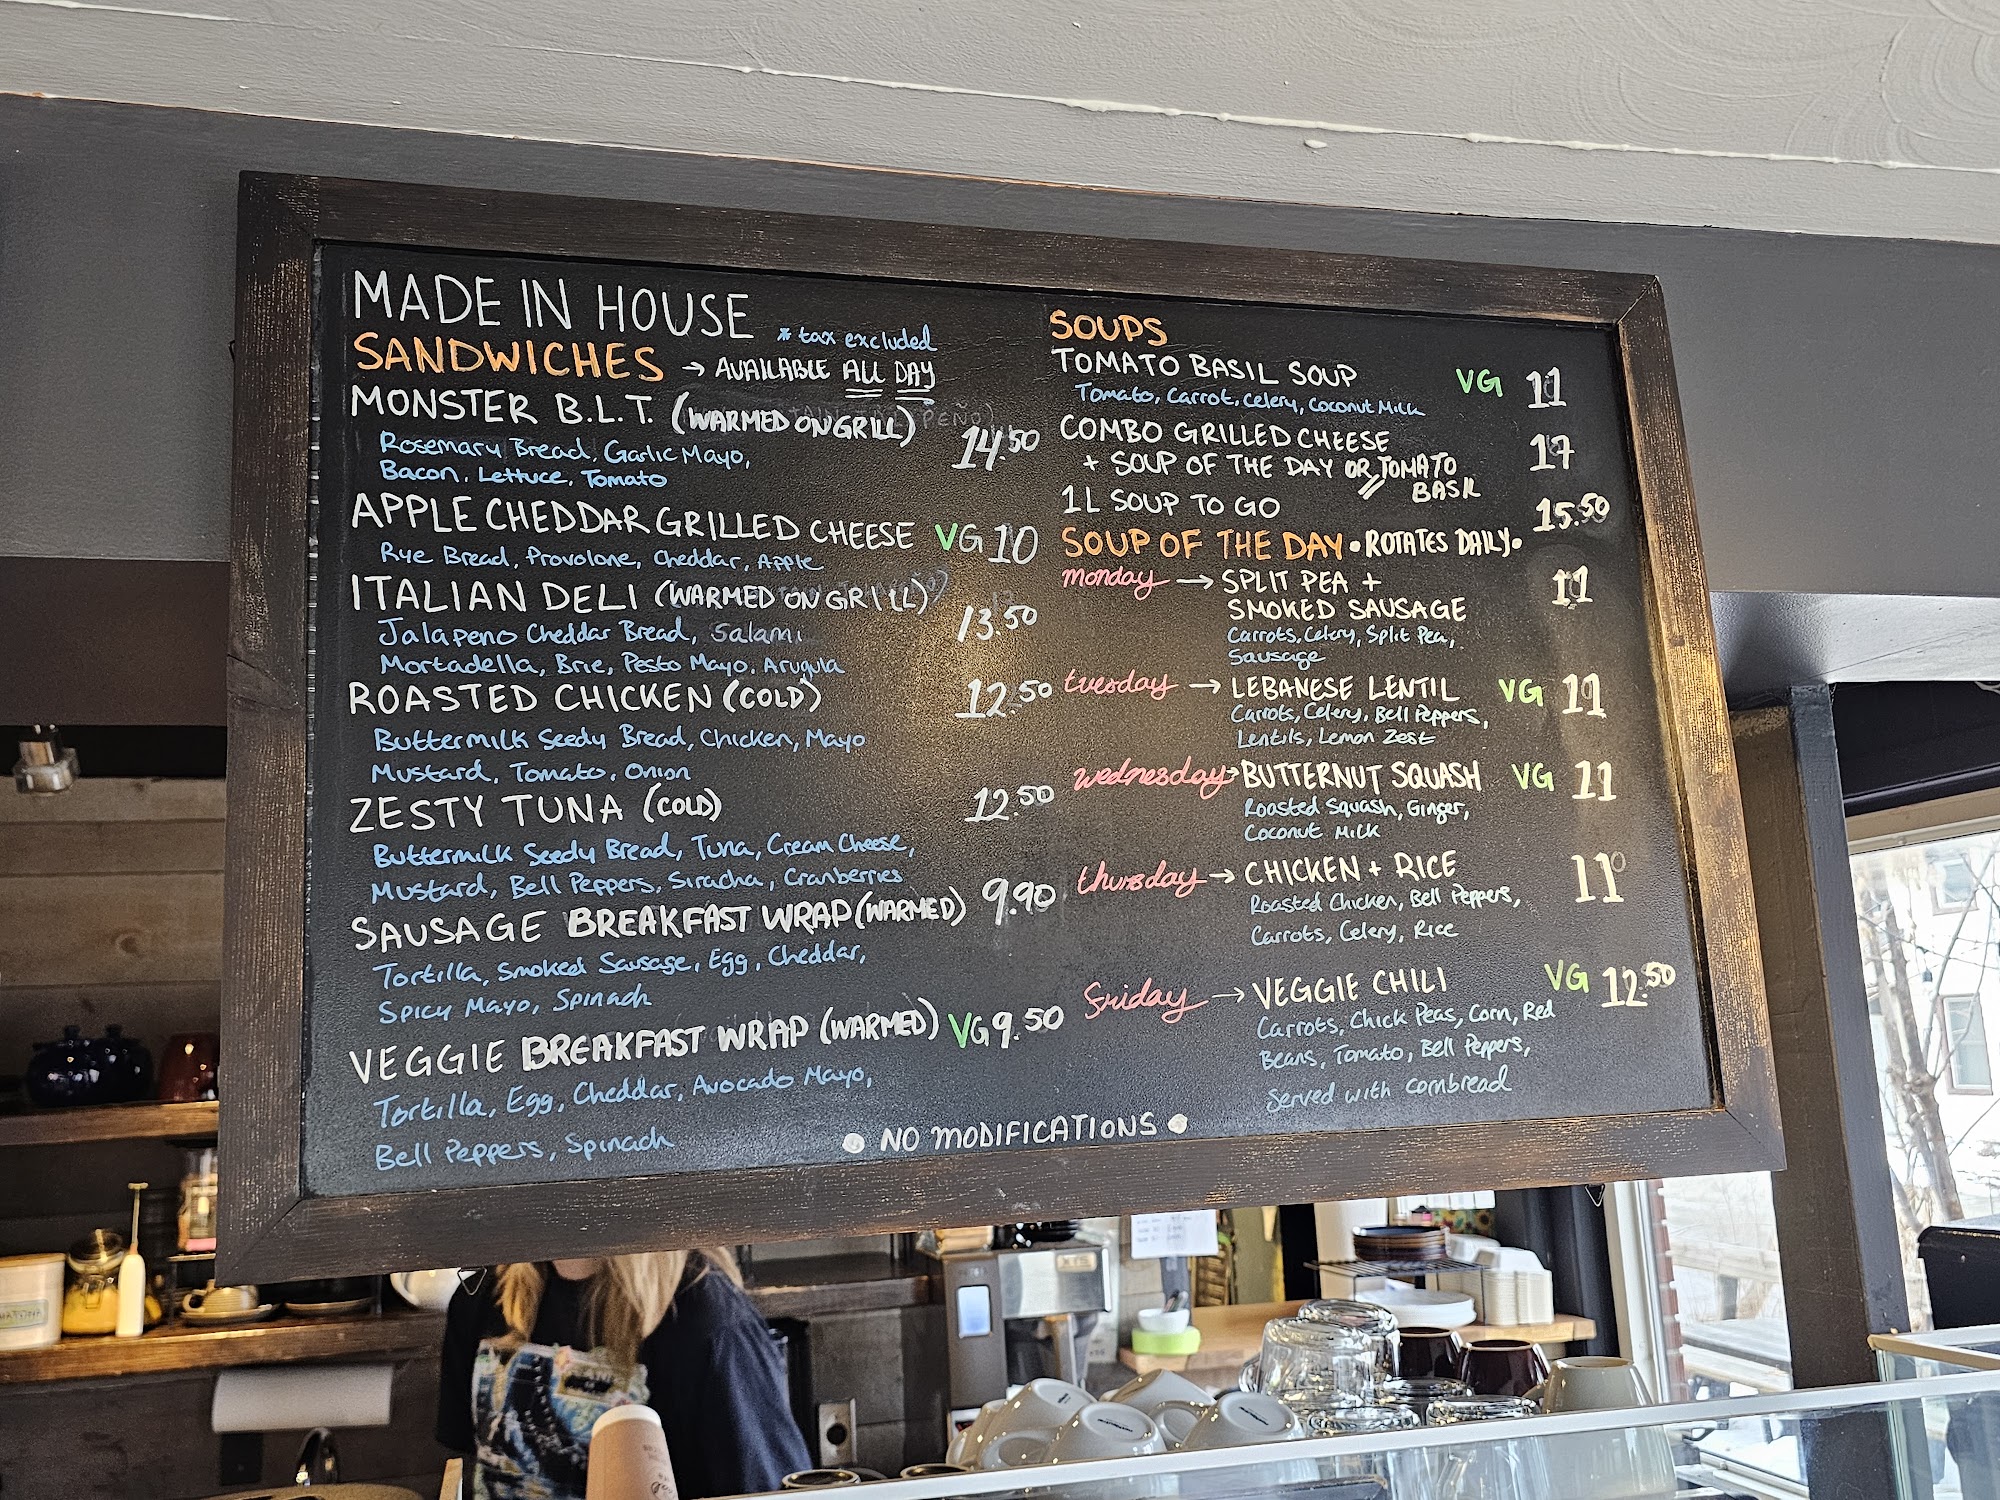 MADE IN HOUSE
* tax excluded
SANDWICHES → AVAILABLE ALL DAY
MONSTER B.L.T. (WARMED ON GRILL) 14.50
Rosemary Bread, Garlic Mayo,
Bacon, Lettuce, Tomato
APPLE CHEDDAR GRILLED CHEESE VG 10
Rye Bread, Provolone, Cheddar, Apple
ITALIAN DELI (WARMED ON GRILL) 13.50
Jalapeno Cheddar Bread, Salami
Mortadella, Brie, Pesto Mayo, Arugula
ROASTED CHICKEN (COLD) 12.50
Buttermilk Seedy Bread, Chicken, Mayo
Mustard, Tomato, Onion
ZESTY TUNA (COLD) 12.50
Buttermilk Seedy Bread, Tuna, Cream Cheese,
Mustard, Bell Peppers, Siracha, Cranberries
SAUSAGE BREAKFAST WRAP (WARMED) 9.90
Tortilla, Smoked Sausage, Egg, Cheddar,
Spicy Mayo, Spinach
VEGGIE BREAKFAST WRAP (WARMED) VG 9.50
Tortilla, Egg, Cheddar, Avocado Mayo,
Bell Peppers, Spinach
SOUPS
TOMATO BASIL SOUP VG 11
Tomato, Carrot, Celery, Coconut Milk
COMBO GRILLED CHEESE 17
+ SOUP OF THE DAY OR TOMATO
BASIL
1L SOUP TO GO 15.50
SOUP OF THE DAY •ROTATES DAILY•
monday → SPLIT PEA + 11
SMOKED SAUSAGE
Carrots, Celery, Split Pea,
Sausage
tuesday → LEBANESE LENTIL VG 11
Carrots, Celery, Bell Peppers,
Lentils, Lemon Zest
wednesday → BUTTERNUT SQUASH VG 11
Roasted Squash, Ginger,
Coconut Milk
thursday → CHICKEN + RICE 11
Roasted Chicken, Bell Peppers,
Carrots, Celery, Rice
friday → VEGGIE CHILI VG 12.50
Carrots, Chick Peas, Corn, Red
Beans, Tomato, Bell Peppers,
Served with cornbread
• NO MODIFICATIONS •